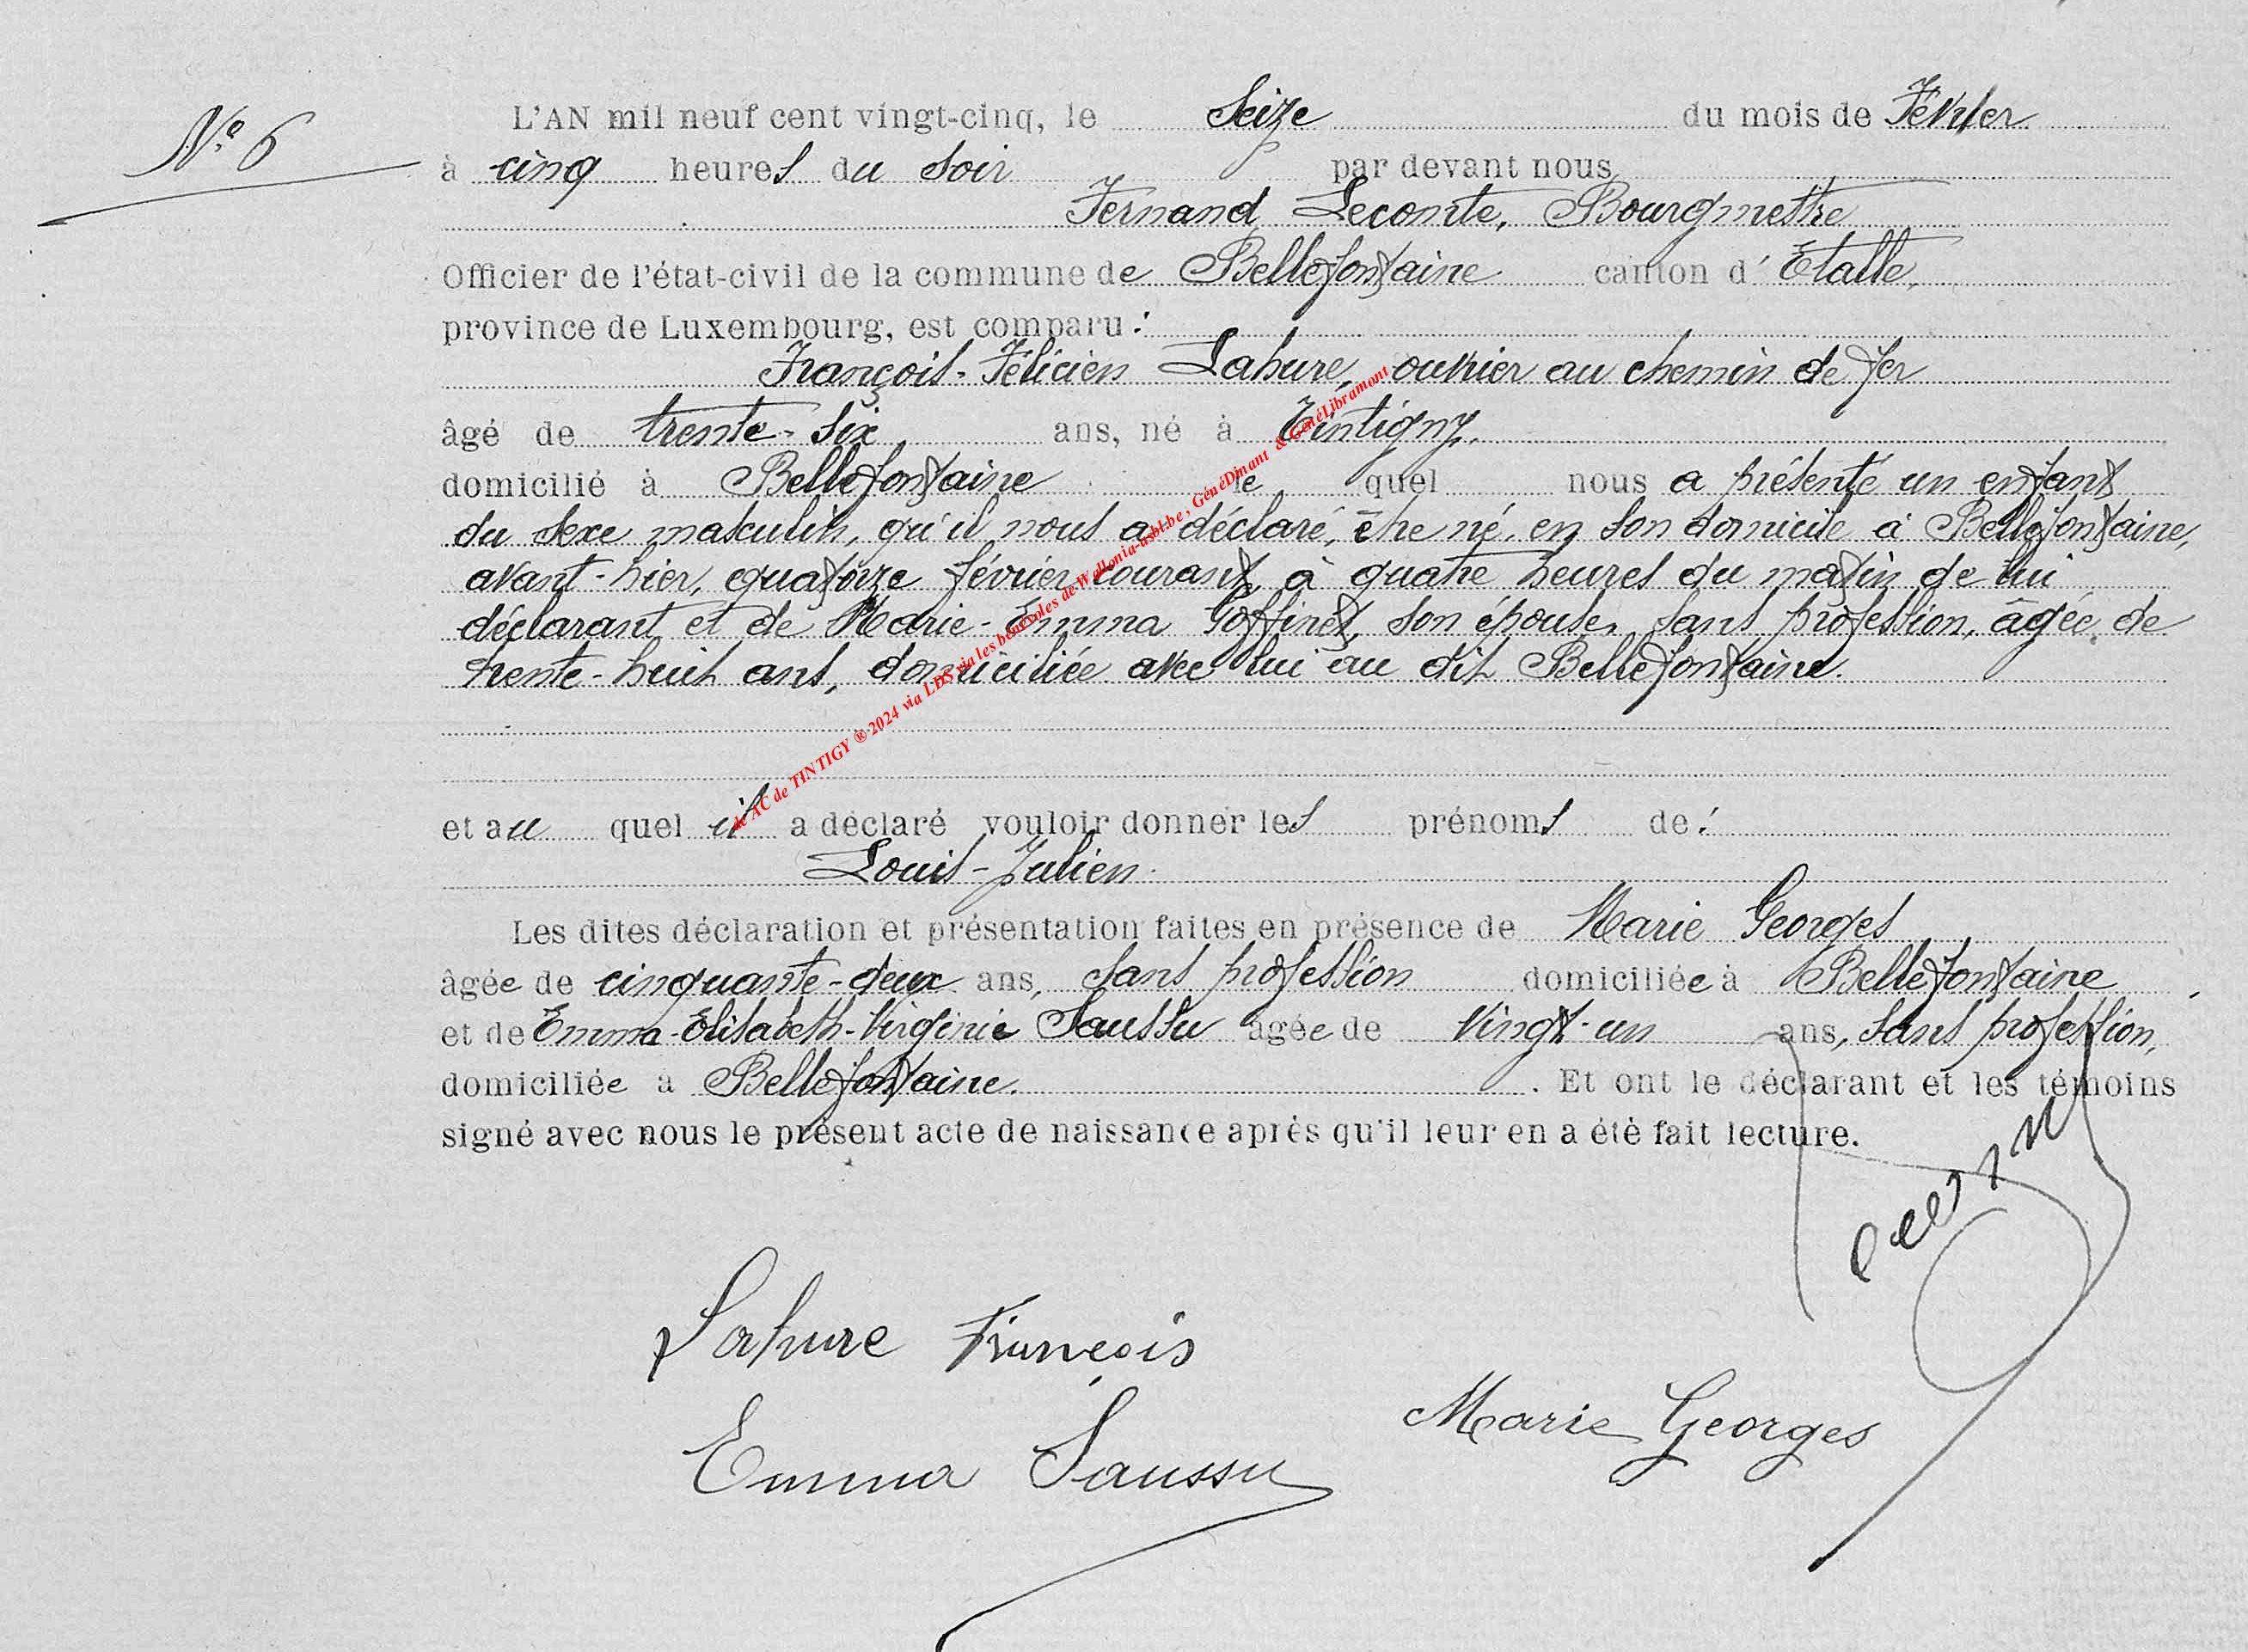 N° 6
L'AN mil neuf cent vingt-cinq, le Seize du mois de Février
à cinq heures du soir par devant nous
Fernand Lecomte, Bourgmestre
Officier de l'état-civil de la commune de Bellefontaine canton d'Etalle,
province de Luxembourg, est comparu :
François-Félicien Lahure, ouvrier au chemin de fer
âgé de trente-six ans, né à Tintigny,
domicilié à Bellefontaine le quel nous a présenté un enfant
du sexe masculin, qu'il nous a déclaré, être né, en son domicile à Bellefontaine,
avant-hier, quatorze février courant, à quatre heures du matin de lui
déclarant et de Marie-Emma Goffinet, son épouse, sans profession, âgée de
trente-huit ans, domiciliée avec lui au dit Bellefontaine.
et au quel il a déclaré vouloir donner les prénoms de :
Louis-Julien.
Les dites déclaration et présentation faites en présence de Marie Georges
âgée de cinquante-deux ans, sans profession domiciliée à Bellefontaine
et de Emma-Elisabeth-Virginie Saussu agée de vingt-un ans, sans profession,
domiciliée à Bellefontaine. Et ont le déclarant et les témoins
signé avec nous le présent acte de naissance après qu'il leur en a été fait lecture.
Lahure François
Emma Saussu
Marie Georges
de AC de TINTIGY ® 2024 via LDS via les bénévoles de Wallonia-asbl.be , GénéDinant & GénéLibramont